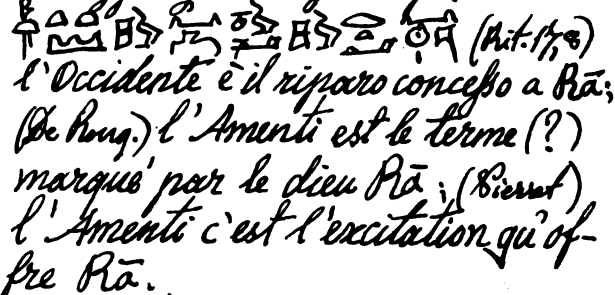 (Rit. 17, 8)
l'Occidente è il riparo concesso a Rā;
(De Roug.) l'Amenti est le terme (?)
marqué par le dieu Rā; (Pierret)
l'Amenti c'est l'excitation qu'of-
fre Rā.